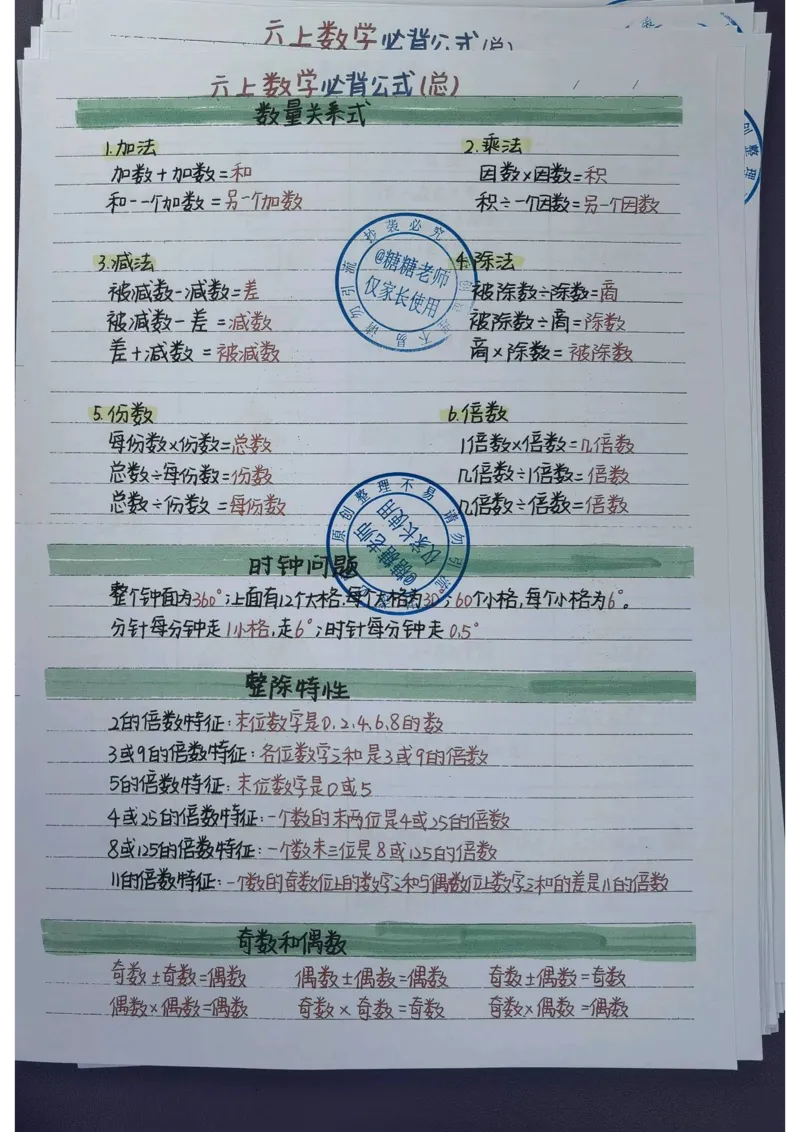 六上数学必背公式(总)
六上数学必背公式(总)
数量关系式
1.加法
2.乘法
加数+加数=和
因数×因数=积
和-一个加数=另一个加数
积÷一个因数=另一个因数
3.减法
4.除法
被减数-减数=差
被除数÷除数=商
被减数-差=减数
被除数÷商=除数
差+减数=被减数
商×除数=被除数
5.份数
6.倍数
每份数×份数=总数
1倍数×倍数=几倍数
总数÷每份数=份数
几倍数÷1倍数=倍数
总数÷份数=每份数
几倍数÷倍数=倍数
抄袭必究
@糖糖老师
仅家长使用
时钟问题
整个钟面为360°;上面有12个大格,每个大格为30°;60个小格,每个小格为6°。
分针每分钟走1小格,走6°;时针每分钟走0.5°
原创整理不易请勿引流
@糖糖老师
仅家长使用
整除特性
2的倍数特征:末位数字是0、2、4、6、8的数
3或9的倍数特征:各位数字之和是3或9的倍数
5的倍数特征:末位数字是0或5
4或25的倍数特征:一个数的末两位是4或25的倍数
8或125的倍数特征:一个数末三位是8或125的倍数
11的倍数特征:一个数的奇数位上的数字之和与偶数位上数字之和的差是11的倍数
奇数和偶数
奇数±奇数=偶数 偶数±偶数=偶数 奇数±偶数=奇数
偶数×偶数=偶数 奇数×奇数=奇数 奇数×偶数=偶数